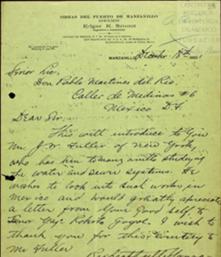 OBRAS DEL PUERTO DE MANZANILLO
Edgar K. Smoot
MANZANILLO,
Señor Lic.
Don Pablo Martinez del Rio,
Calle de Medinas #6
Mexico D.F.
Dear Sir:
This will introduce to you
Mr. J. W. Fuller of New York,
who has been studying
the water and sewer systems. He
wishes to look into such works in
Mexico and would greatly appreciate
a letter from your Good self to
Señor Roberto Gayol. I wish to
thank you for this courtesy to
Mr Fuller